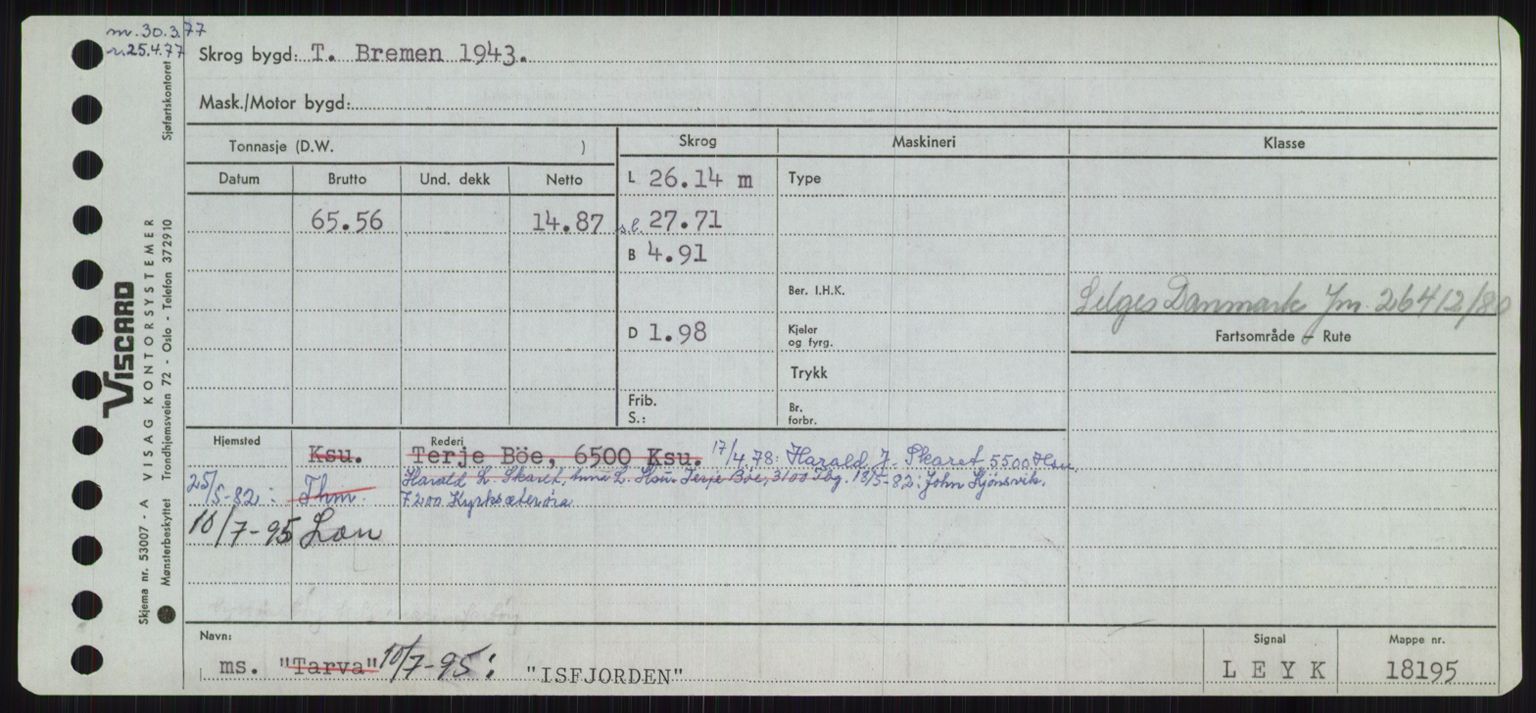 m. 30.3.77
r. 25.4.77
Skrog bygd: T. Bremen 1943.
Mask./Motor bygd:
Tonnasje (D.W. )
Skrog
Maskineri
Klasse
Datum Brutto Und. dekk Netto
L 26.14 m
Type
65.56 14.87
s.l. 27.71
B 4.91
Ber. I.H.K.
Selges Danmark Jm. 264 12/80
D 1.98
Kjeler og fyrg.
Fartsområde - Rute
Trykk
Frib.
S.:
Br. forbr.
Hjemsted
Rederi
Ksu. Terje Böe, 6500 Ksu. 17/4.78: Harald J. Skaret 5500 Hau
25/5-82: Thm. Harald L. Skaret, Anna L. Hau, Terje Böe, 3100 Tbg. 18/5-82: John Kjönsvik.
7200 Kyrksæteröra
10/7-95 Lon
Navn:
ms. "Tarva" 10/7-95: "ISFJORDEN"
Signal
L E Y K
Mappe nr.
18195
Sjøfartskontoret
VISCARD
VISAG KONTORSYSTEMER
Trondhjemsveien 72 - Oslo - Telefon 372910
Skjema nr. 53007 - A
Mønsterbeskyttet